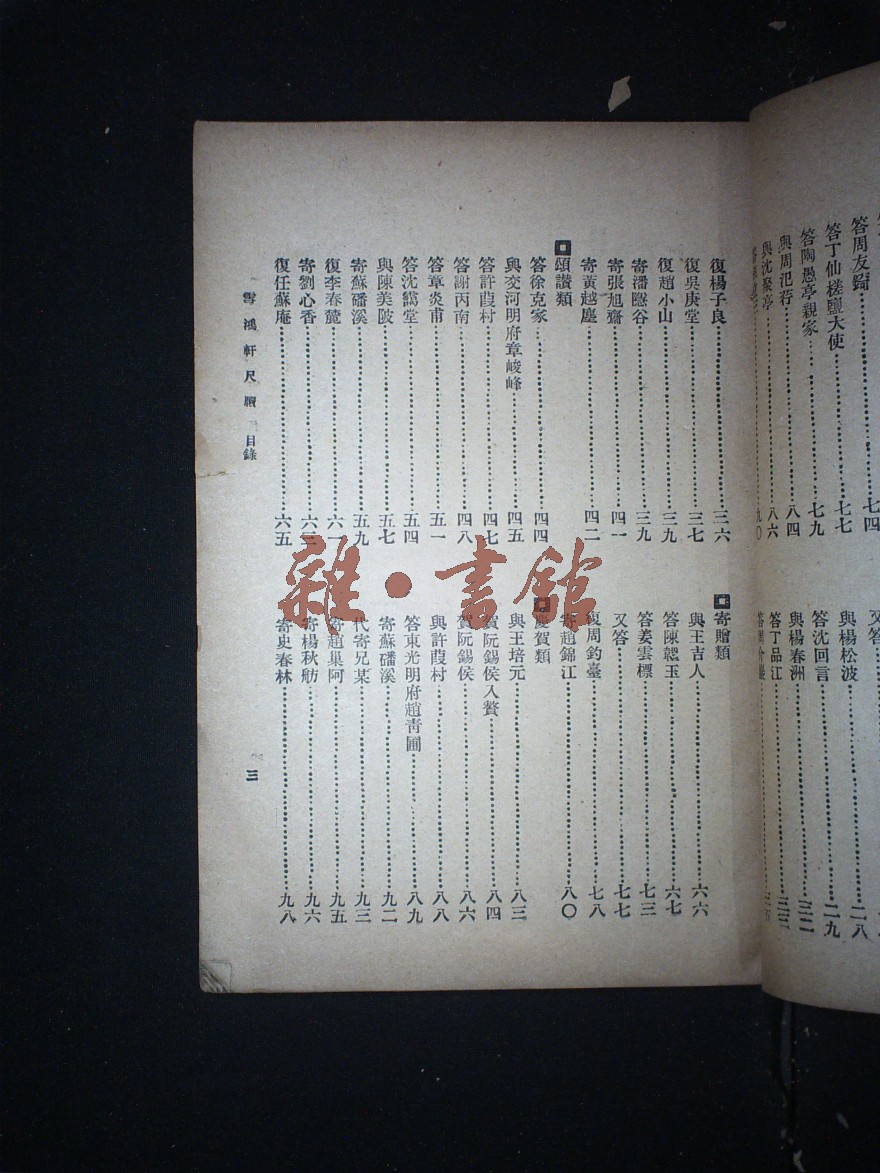 答周友錡……七四
答丁仙槎鹽大使……七七
答陶愚亭親家……七九
與周汜荇……八四
與沈聚亭……八六
九〇
又答
與楊松波……二八
答沈回言……二九
與楊春洲……三二
答丁品江……三三
復楊子良……三六
復吳庚堂……三七
復趙小山……三九
寄潘豁谷……三九
寄張旭齋……四一
寄黃越塵……四二
頌讚類
答徐克家……四四
與交河明府章峻峰……四五
答許葭村……四七
答謝丙南……四八
答章炎甫……五一
答沈鷁堂……五四
與陳美陂……五七
寄蘇磻溪……五九
復李春麓……六一
寄劉心香……六三
復任蘇庵……六五
寄贈類
與王吉人……六六
答陳韞玉……六七
答姜雲標……七三
又答……七七
復周鈞臺……七八
寄趙錦江……八〇
慶賀類
與王培元……八三
賀阮錫侯入贅……八四
賀阮錫侯……八六
與許葭村……八八
答東光明府趙青圃……八九
寄蘇磻溪……九二
代寄兄某……九三
寄趙巢阿……九五
寄楊秋舫……九六
寄史春林……九八
雪鴻軒尺牘 目錄
三
雜·書館